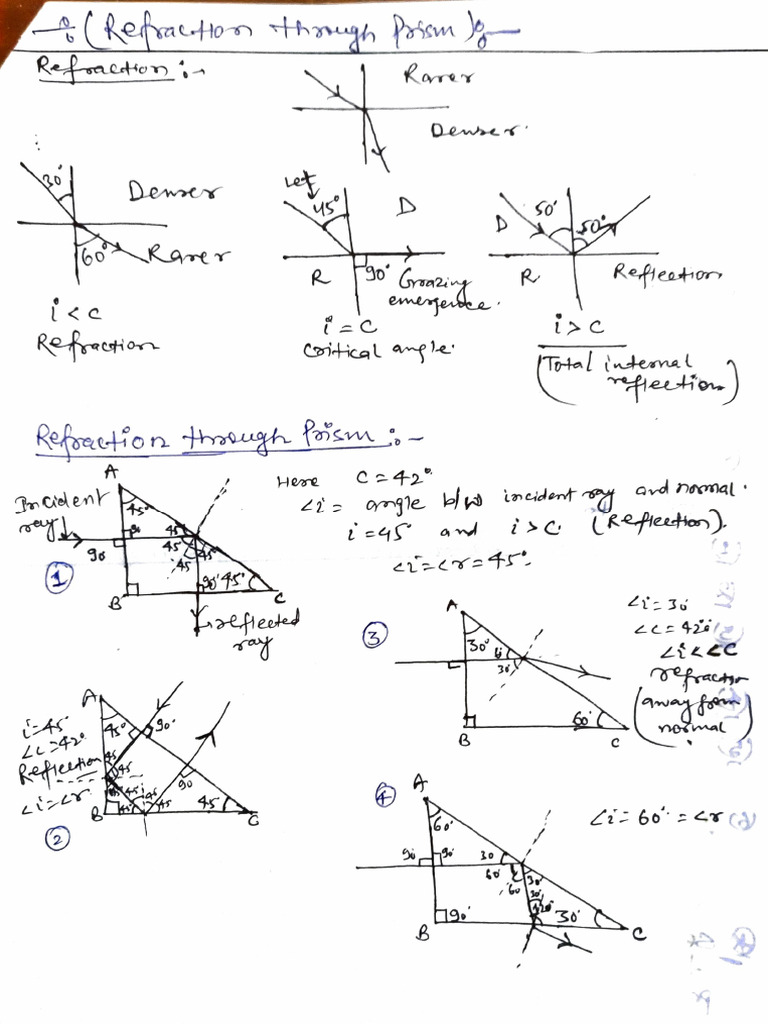 (Refraction through Prism)
Refraction :-
Rarer
Denser
30°
Denser
60°
Rarer
i < c
Refraction
Let
45°
D
R
90°
Grazing
emergence.
i = c
Critical angle.
50°
50°
D
R
Reflection
i > c
(Total internal
reflection)
Refraction through Prism :-
A
Incident
ray
45°
90
90
45
45
45
45
90°
45°
B
C
1
reflected
ray
Here C = 42°
∠i = angle b/w incident ray and normal.
i = 45° and i > c (Reflection).
∠i = ∠r = 45°
3
A
30°
30°
60°
B
C
∠i = 30
∠c = 42°
∠i < ∠C
refraction
(away from
normal)
A
i = 45°
∠c = 42°
Reflection
∠i = ∠r
45°
90°
45
45
45
45
45
45
90
45
B
C
2
4
A
60°
90°
90°
30
60°
60
30°
30°
120°
90°
30°
B
C
∠i = 60° = ∠r